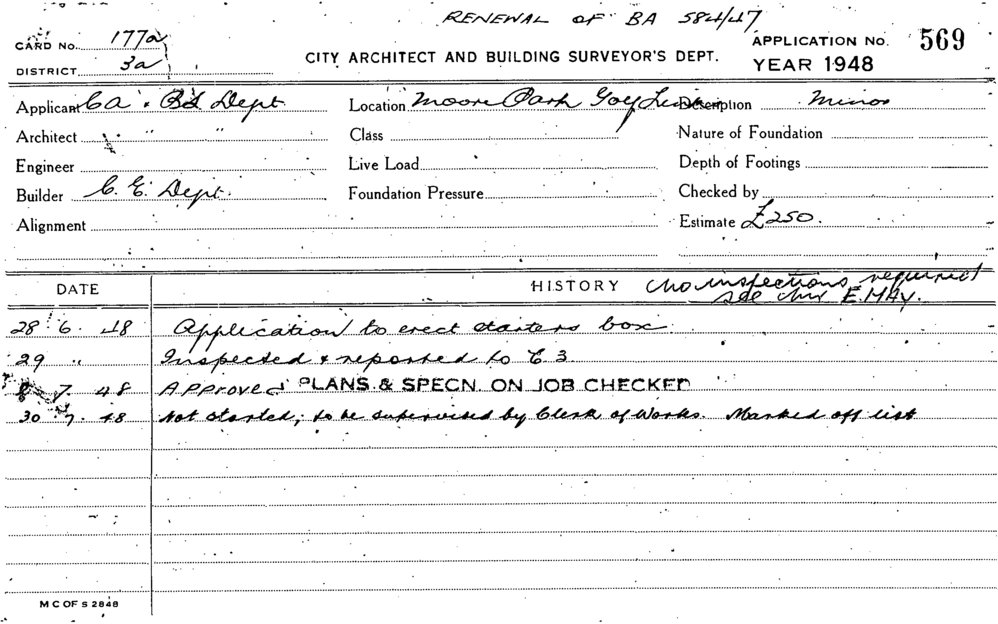 RENEWAL OF BA 584/47
CARD No. 177a
DISTRICT 3a
CITY ARCHITECT AND BUILDING SURVEYOR'S DEPT.
APPLICATION No. 569
YEAR 1948
Applicant CA & BS Dept Location Moore Park Golf Links Description Minor
Architect " " " Class Nature of Foundation
Engineer Live Load Depth of Footings
Builder C. E. Dept. Foundation Pressure Checked by
Alignment Estimate £250.
DATE HISTORY No inspections required
see E. MAY.
28 6 48 Application to erect starters box
29 " Inspected & reported to C 3
8 7 48 APProved PLANS & SPECN. ON JOB CHECKED
30 7 48 Not started, to be supervised by Clerk of Works. Marked off list
M C OF S 2848